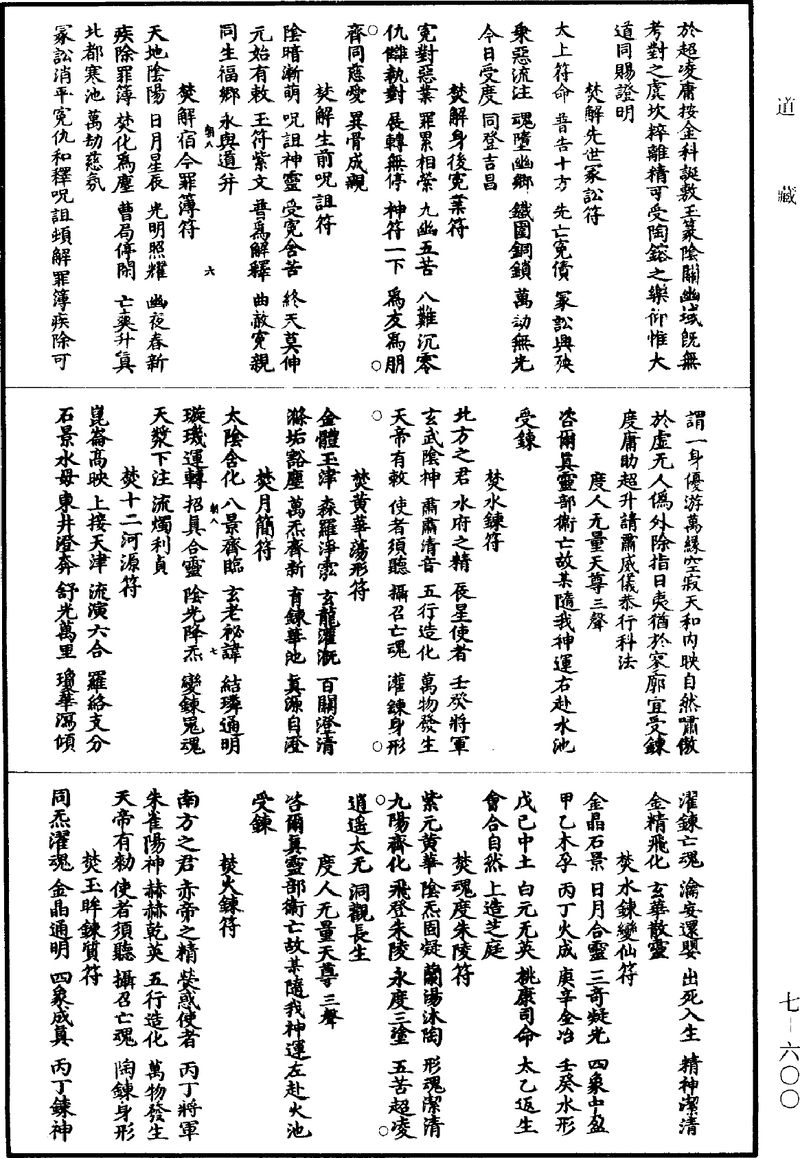 道藏
七-六〇〇
於超凌庸按金科誕敷玉篆陰關幽域旣無
考對之虞坎粹離精可受陶鎔之樂仰惟大
道同賜證明
焚解先世冢訟符
太上符命 普告十方 先亡寃債 冢訟興殃
乘惡流注 魂墮幽鄉 鐵圍銅鎖 萬劫無光
今日受度 同登吉昌
焚解身後寃業符
寃對惡業 罪累相縈 九幽五苦 八難沉零
仇讎執對 展轉無停 神符一下 爲友爲朋
齊同慈愛 異骨成親
焚解生前呪詛符
陰暗漸萌 呪詛神靈 受寃舍苦 終天莫伸
元始有敕 玉符紫文 普爲解釋 曲赦寃親
同生福鄉 永與道幷
焚解宿今罪簿符
六
天地陰陽 日月星辰 光明照耀 幽夜春新
疾除罪簿 焚化爲塵 曹局停閉 亡奭升眞
北都寒池 萬劫慈氛
冢訟消平寃仇和釋呪詛頓解罪簿疾除可
謂一身優游萬緣空寂天和內映自然嘯傲
於虛无人僞外除指日夷猶於寥廓宜受鍊
度庸助超升請肅威儀恭行科法
度人无量天尊三聲
咨爾眞靈部衛亡故某隨我神運右赴水池
受鍊
焚水鍊符
北方之君 水府之精 辰星使者 壬癸將軍
玄武陰神 肅肅清音 五行造化 萬物發生
天帝有敕 使者須聽 攝召亡魂 灌鍊身形
焚黃華蕩形符
金體玉津 森羅淨泓 玄龍灌溉 百關澄清
滌垢豁塵 萬炁齊新 育鍊華池 眞源自澄
焚月簡符
太陰含化 八景齊臨 玄老祕諱 結璘通明
七
璇璣運轉 招眞合靈 陰光降炁 變鍊鬼魂
天漿下注 流燭利貞
焚十二河源符
崑崙高映 上接天津 流演六合 羅絡支分
石景水母 東井澄奔 舒光萬里 瓊華瀉傾
濯鍊亡魂 淪妄還嬰 出死入生 精神潔清
金精飛化 玄華散靈
焚水鍊變仙符
金晶石景 日月合靈 三奇凝光 四象中盈
甲乙木孚 丙丁火成 庚辛金冶 壬癸水形
戊己中土 白元无英 桃康司命 太乙返生
會合自然 上造芝庭
焚魂度朱陵符
紫元黃華 陰炁固凝 蘭湯沐陶 形魂潔清
九陽齊化 飛登朱陵 永度三塗 五苦超凌
逍遥太无 洞觀長生
度人无量天尊 三聲
咨爾眞靈部衛亡故某隨我神運左赴火池
受鍊
焚火鍊符
南方之君 赤帝之精 熒惑使者 丙丁將軍
朱雀陽神 赫赫乾英 五行造化 萬物發生
天帝有勑 使者須聽 攝召亡魂 陶鍊身形
焚玉眸鍊質符
同炁濯魂 金晶通明 四象成眞 丙丁鍊神